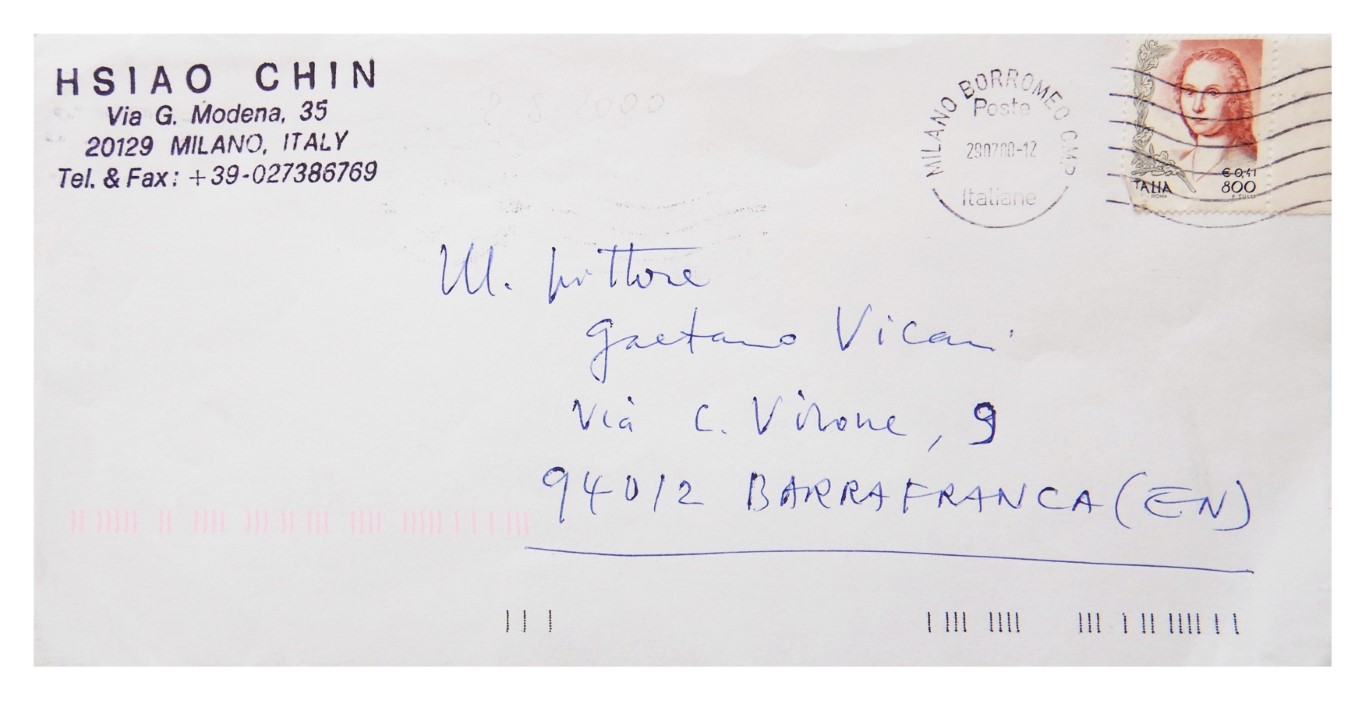 HSIAO CHIN
Via G. Modena, 35
20129 MILANO, ITALY
Tel. & Fax: +39-027386769
2 8 2000
MILANO BORROMEO CMP
Poste
280700-12
Italiane
€ 0,41
ITALIA 800
M. pittore
Gaetano Vicari
Via C. Virone, 9
94012 BARRAFRANCA (EN)